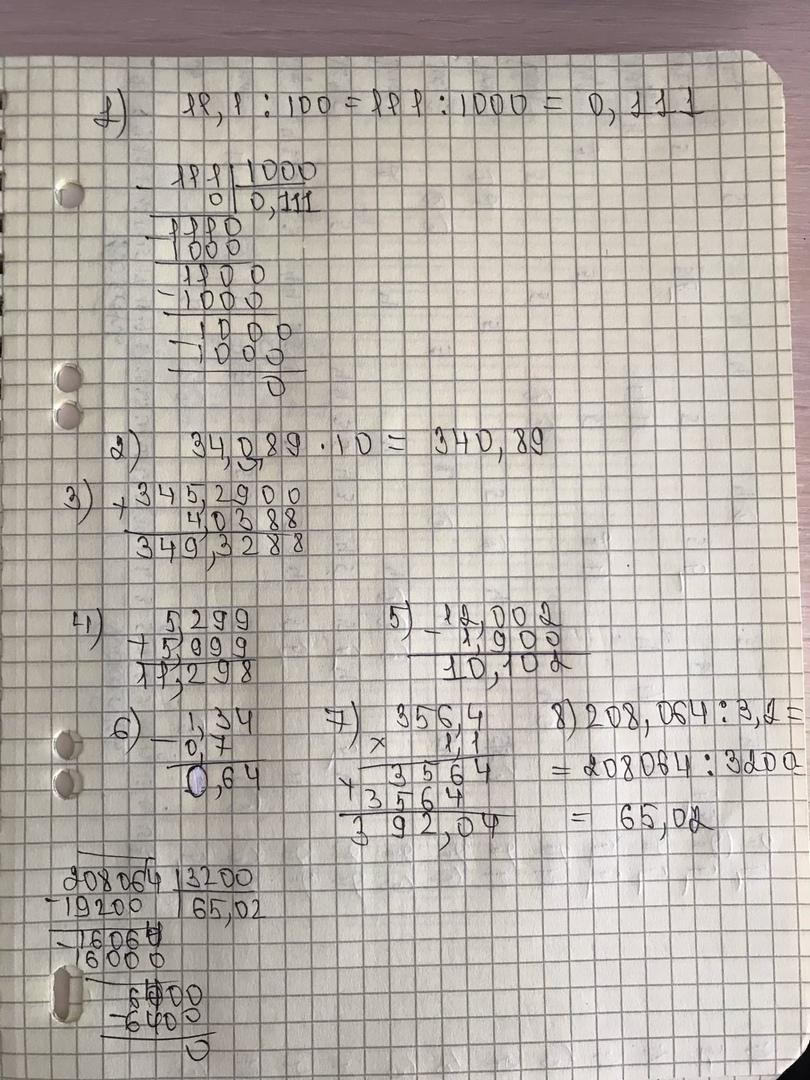 1) 11,1 : 100 = 111 : 1000 = 0,111
- 111 | 1000
0 | 0,111
1110
- 1000
1100
- 1000
1000
- 1000
0
2) 34,0,89 · 10 = 340,89
3) + 345,2900
4,0388
349,3288
4) 5,299
+ 5,999
11,298
5) - 12,002
1,900
10,102
6) - 1,34
0,7
0,64
7) 356,4
× 1,1
+ 3564
3564
392,04
8) 208,064 : 3,2 =
= 208064 : 3200
= 65,02
208064 | 3200
- 19200 | 65,02
- 16064
16000
6400
- 6400
0